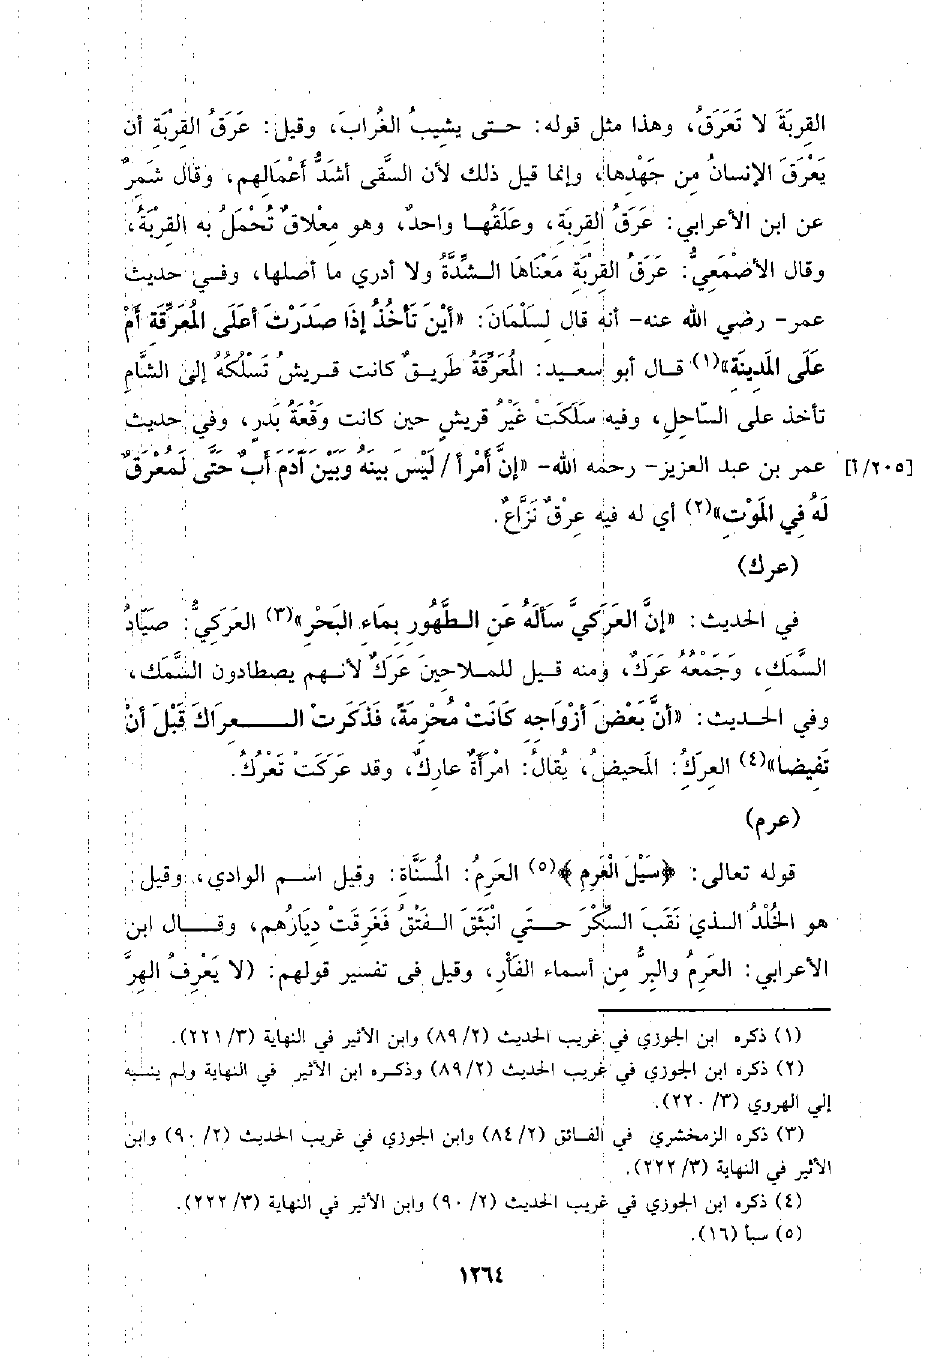 القِربَةَ لا تَعَرَقُ، وهذا مثل قوله: حـتـى يشيبُ الغُرابَ، وقيل: عَرَقُ القِربْة أن
يَعْرَقَ الإنسانُ مِن جَهْدِها، وإنما قيل ذلك لأن السقَّى أشدُّ أعْمَالِهم، وقال شَمِرٌ
عن ابن الأعرابي: عَرَقُ القِربَةِ، وعَلَقُهـا واحدٌ، وهو مِعْلاقٌ تُحْمَلُ به القِرْبَةُ،
وقال الأصْمَعِيُّ: عَرَقُ القِرْبَةِ مَعْنَاهَا الـشِّدَّةُ ولا أدري ما أصلها، وفـي حديث
عمر- رضي الله عنه- أنه قال لِسَلْمَانَ: «أيْنَ تَأخُذُ إذَا صَدَرْتَ أعَلَى المُعَرِّقَةِ أمْ
عَلَى المَدِينَةِ»(١) قـال أبو سعيد: المُعَرِّقَةُ طَرِيقٌ كانت قريشُ تَسْلُكُهُ إلى الشَّامِ
تأخذ على السّاحِلِ، وفيه سَلَكَتْ عَيْرُ قريشٍ حين كانت وَقْعَةُ بَدرٍ، وفي حديث
[٢٠٥/أ] عمر بن عبد العزيز- رحمه الله- «إنَّ أمْرأ / لَيْسَ بينهُ وَبَيْنَ آدَمَ أبٌ حَتَّى لَمُعْرَقٌ
لَهُ فِي المَوْتِ»(٢) أي له فيه عِرْقٌ نَزَّاعٌ.
(عرك)
في الحديث: «إنَّ العَرَكيَّ سَألَهُ عَنِ الـطَّهُورِ بِمَاءِ البَحْرِ»(٣) العَرَكيُّ: صيَّادُ
السَّمَكِ، وَجَمْعُهُ عَرَكٌ، ومنه قـيل للمـلاحينَ عَرَكٌ لأنـهم يصطادون السَّمَك،
وفي الحـديث: «أنَّ بَعْضَ أزْوَاجِهِ كَانَتْ مُحْرِمَةً، فَذَكَرتْ العراكَ قَبْلَ أنْ
تَفِيضا»(٤) العِركُ: المَحيضُ، يُقالُ: امْرَأةٌ عارِكٌ، وقد عَرَكَتْ تَعْرُكُ.
(عرم)
قوله تعالى: ﴿سَيْلَ الْعَرِمِ﴾(٥) العَرِمُ: المُسَنَّاة: وقيل اسْـم الوادِي، وقيل:
هو الخُلْدُ الـذي نَقَبَ السِّكْرَ حـتـى انْبَثَقَ الـفَتْقُ فَغَرِقَتْ دِيَارُهم، وقـال ابن
الأعرابي: العَرِمُ والبِرُّ مِن أسماء الفَأْرِ، وقيل فى تفسير قولهم: (لا يَعْرِفُ الهِرَّ
(١) ذكره ابن الجوزي في غريب الحديث (٨٩/٢) وابن الأثير في النهاية (٣/ ٢٢١).
(٢) ذكره ابن الجوزي في غريب الحديث (٨٩/٢) وذكـره ابن الأثير في النهاية ولم ينسبه
إلى الهروي (٣/ ٢٢٠).
(٣) ذكره الزمخشري في الفـائق (٨٤/٢) وابن الجوزي في غريب الحديث (٢/ ٩٠) وابن
الأثير في النهاية (٣/ ٢٢٢).
(٤) ذكره ابن الجوزي في غريب الحديث (٢/ ٩٠) وابن الأثير في النهاية (٣/ ٢٢٢).
(٥) سبأ (١٦).
١٢٦٤